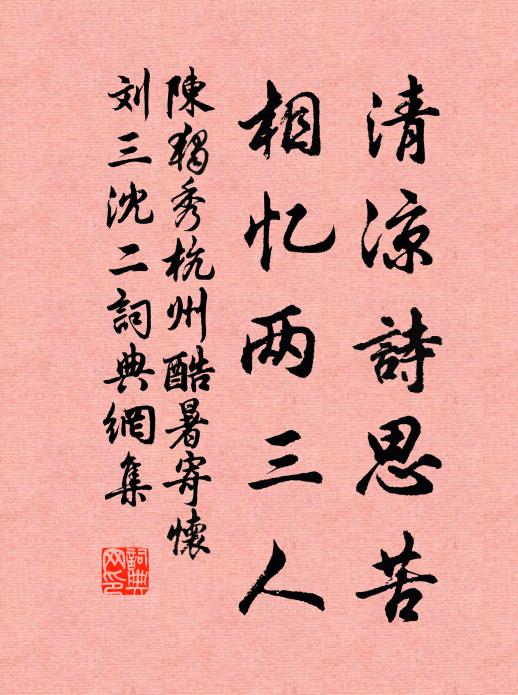 清凉詩思苦
相忆两三人
陳獨秀杭州酷暑寄懷
刘三沈二詞典網集
詞典網印